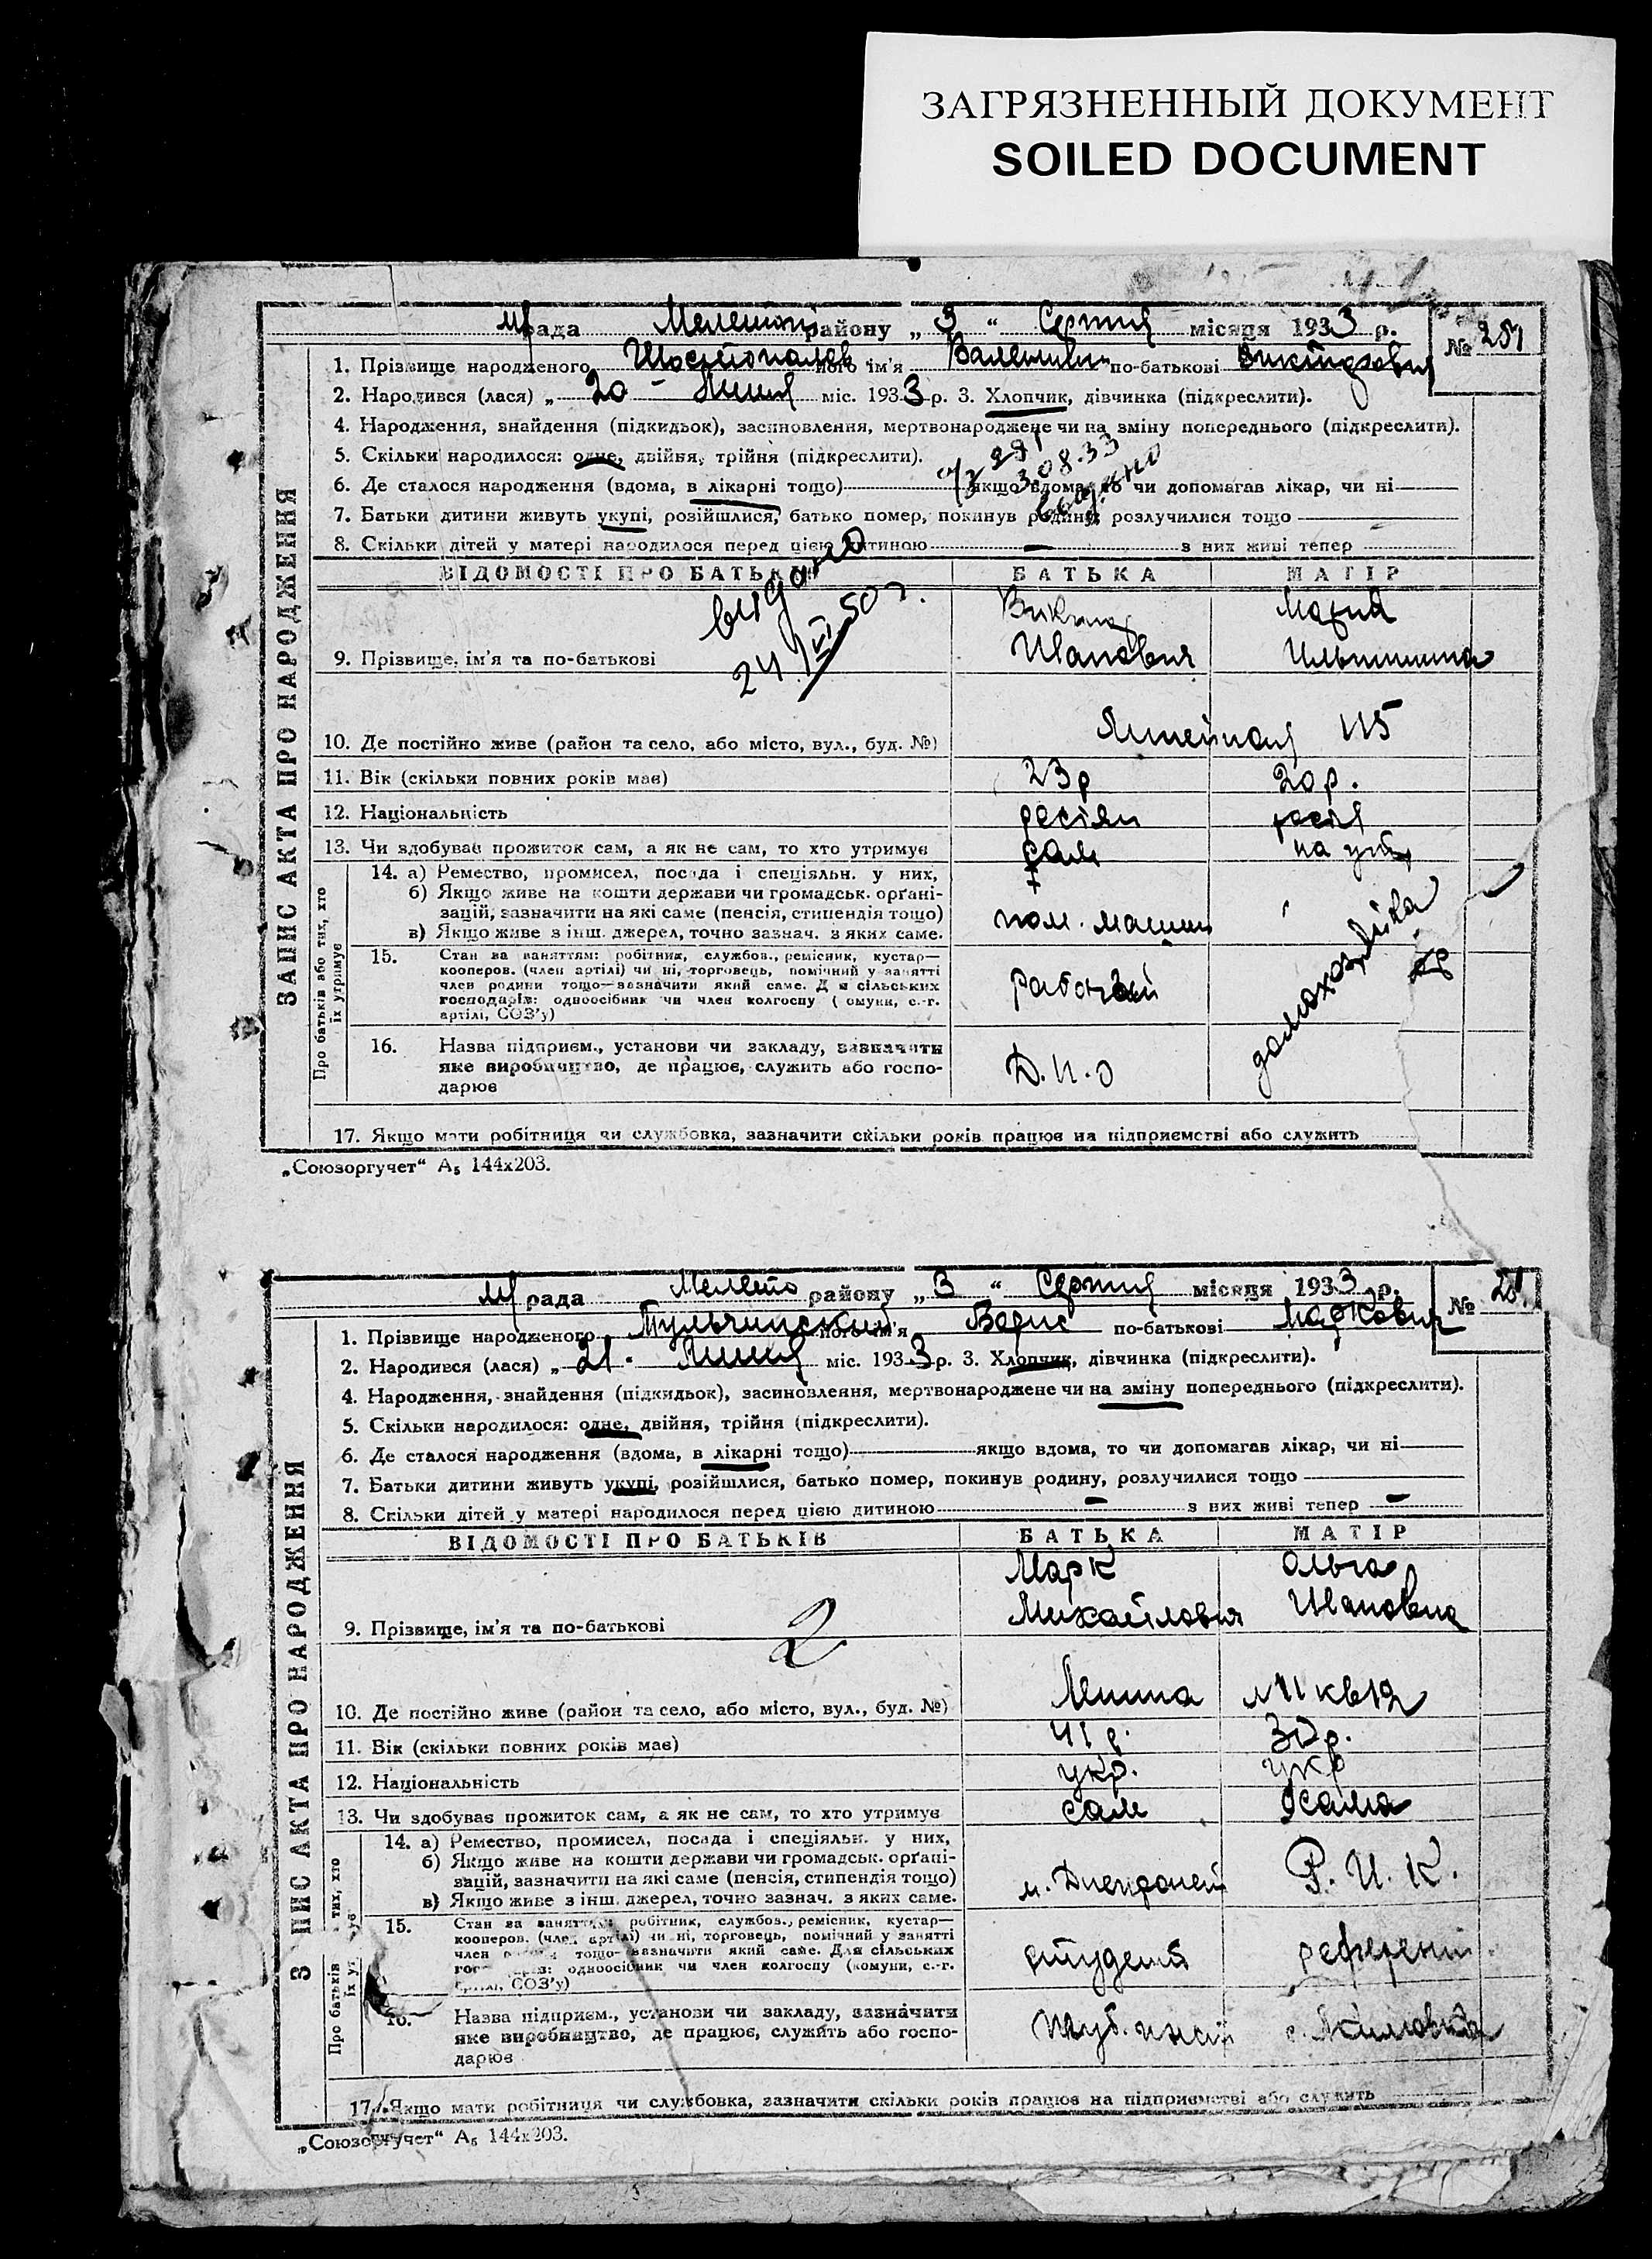 ЗАГРЯЗНЕННЫЙ ДОКУМЕНТ
SOILED DOCUMENT
рада району „ 3 “ Серпня місяця 1933 р.
№ 251
1. Прізвище народженого його ім'я Валентин по-батькові
2. Народився (лася) „ 20 - Липня міс. 1933 р. 3. Хлопчик, дівчинка (підкреслити).
4. Народження, знайдення (підкидьок), засиновлення, мертвонароджене чи на зміну попереднього (підкреслити).
5. Скільки народилося: одне, двійня, трійня (підкреслити).
6. Де сталося народження (вдома, в лікарні тощо) якщо вдома, то чи допомагав лікар, чи ні
7. Батьки дитини живуть укупі, розійшлися, батько помер, покинув родину, розлучилися тощо
8. Скільки дітей у матері народилося перед цією дитиною — з них живі тепер
3.08.33
видано
24/VI 50 г.
ЗАПИС АКТА ПРО НАРОДЖЕННЯ
ВІДОМОСТІ ПРО БАТЬКІВ БАТЬКА МАТІР
Мария
9. Прізвище, ім'я та по-батькові Иванович
10. Де постійно живе (район та село, або місто, вул., буд. №) Линейная 115
11. Вік (скільки повних років має) 23 р 20 р.
12. Національність
13. Чи здобував прожиток сам, а як не сам, то хто утримує сам на утр
Про батьків або тих, хто їх утримує
14. а) Ремество, промисел, посада і спеціяльн. у них,
б) Якщо живе на кошти держави чи громадськ. організацій, зазначити на які саме (пенсія, стипендія тощо)
в) Якщо живе з інш. джерел, точно зазнач. з яких саме.
пом. машин
домохозяйка
15. Стан за заняттям: робітник, службов., ремісник, кустар—
кооперов. (член артілі) чи ні, торговець, помічний у занятті
член родини тощо—зазначити який саме. Для сільських
господарів: одноосібник чи член колгоспу (комуни, с.-г.
артілі, СОЗ'у)
рабочий
16. Назва підприєм., установи чи закладу, зазначити
яке виробництво, де працює, служить або господарює
17. Якщо мати робітниця чи службовка, зазначити скільки років працює на підприємстві або служить
„Союзоргучет“ А₅ 144х203.
рада району „ 3 “ Серпня місяця 1933 р.
№
1. Прізвище народженого Тульчинский його ім'я Борис по-батькові Маркович
2. Народився (лася) „ 21. Липня міс. 1933 р. 3. Хлопчик, дівчинка (підкреслити).
4. Народження, знайдення (підкидьок), засиновлення, мертвонароджене чи на зміну попереднього (підкреслити).
5. Скільки народилося: одне, двійня, трійня (підкреслити).
6. Де сталося народження (вдома, в лікарні тощо) якщо вдома, то чи допомагав лікар, чи ні
7. Батьки дитини живуть укупі, розійшлися, батько помер, покинув родину, розлучилися тощо
8. Скільки дітей у матері народилося перед цією дитиною — з них живі тепер —
ВІДОМОСТІ ПРО БАТЬКІВ БАТЬКА МАТІР
Марк Ольга
9. Прізвище, ім'я та по-батькові 2 Михайлович Ивановна
10. Де постійно живе (район та село, або місто, вул., буд. №) Ленина кв 12
11. Вік (скільки повних років має) 41 р.
12. Національність укр. укр
13. Чи здобуває прожиток сам, а як не сам, то хто утримує сам сама
14. а) Ремество, промисел, посада і спеціяльн. у них,
б) Якщо живе на кошти держави чи громадськ. організацій, зазначити на які саме (пенсія, стипендія тощо)
в) Якщо живе з інш. джерел, точно зазнач. з яких саме.
Р. И. К.
15. Стан за заняттям: робітник, службов., ремісник, кустар—
кооперов. (член артілі) чи ні, торговець, помічний у занятті
член тощо—зазначити який саме. Для сільських
одноосібник чи член колгоспу (комуни, с.-г.
артілі, СОЗ'у)
студент референт
16. Назва підприєм., установи чи закладу, зазначити
яке виробництво, де працює, служить або господарює
с. Якимовка
17. Якщо мати робітниця чи службовка, зазначити скільки років працює на підприємстві або служить
„Союзоргучет“ А₅ 144х203.